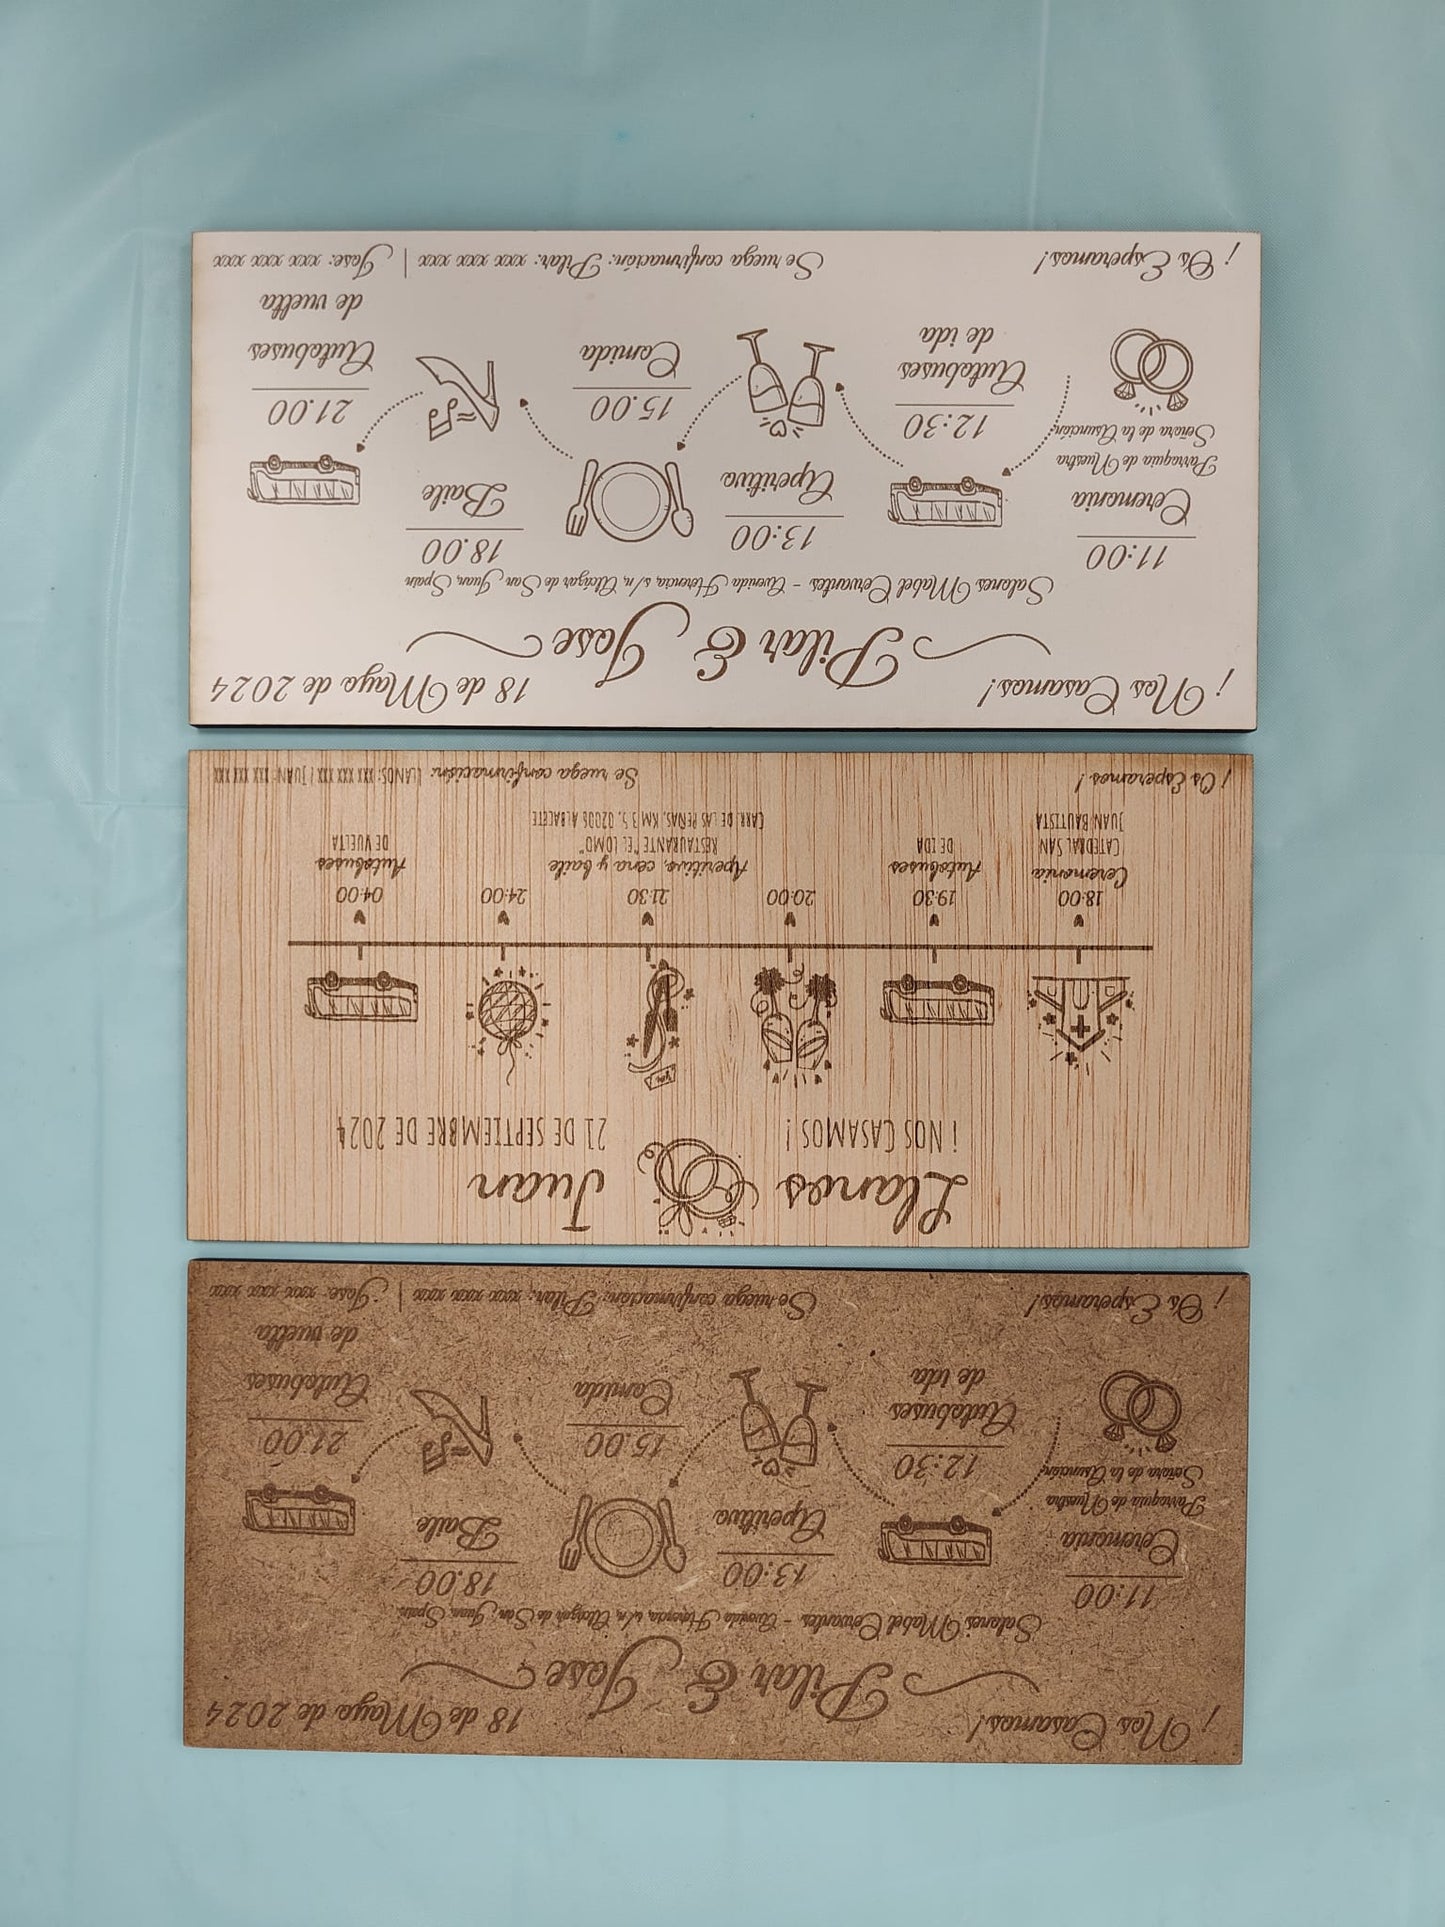 ¡Nos Casamos!
18 de Mayo de 2024
Pilar & Jose
Salones Mabel Cervantes - Avenida Herencia, s/n, Alcázar de San Juan, Spain
11:00
Ceremonia
Parroquia de Nuestra
Señora de la Asunción
12:30
Autobuses
de ida
13:00
Aperitivo
15.00
Comida
18.00
Baile
21.00
Autobuses
de vuelta
¡Os Esperamos!
Se ruega confirmación: Pilar: xxx xxx xxx | Jose: xxx xxx xxx
Llanos Juan
¡NOS CASAMOS! 21 DE SEPTIEMBRE DE 2024
18:00
Ceremonia
CATEDRAL SAN
JUAN BAUTISTA
19:30
Autobuses
DE IDA
20:00
21:30
24:00
Aperitivo, cena y baile
RESTAURANTE "EL LOMO"
CARR. DE LAS PEÑAS, KM 3.5, 02006 ALBACETE
04:00
Autobuses
DE VUELTA
¡Os Esperamos!
Se ruega confirmación: LLANOS: XXX XXX XXX / JUAN: XXX XXX XXX
¡Nos Casamos!
18 de Mayo de 2024
Pilar & Jose
Salones Mabel Cervantes - Avenida Herencia, s/n, Alcázar de San Juan, Spain
11:00
Ceremonia
Parroquia de Nuestra
Señora de la Asunción
12:30
Autobuses
de ida
13:00
Aperitivo
15.00
Comida
18.00
Baile
21.00
Autobuses
de vuelta
¡Os Esperamos!
Se ruega confirmación: Pilar: xxx xxx xxx | Jose: xxx xxx xxx